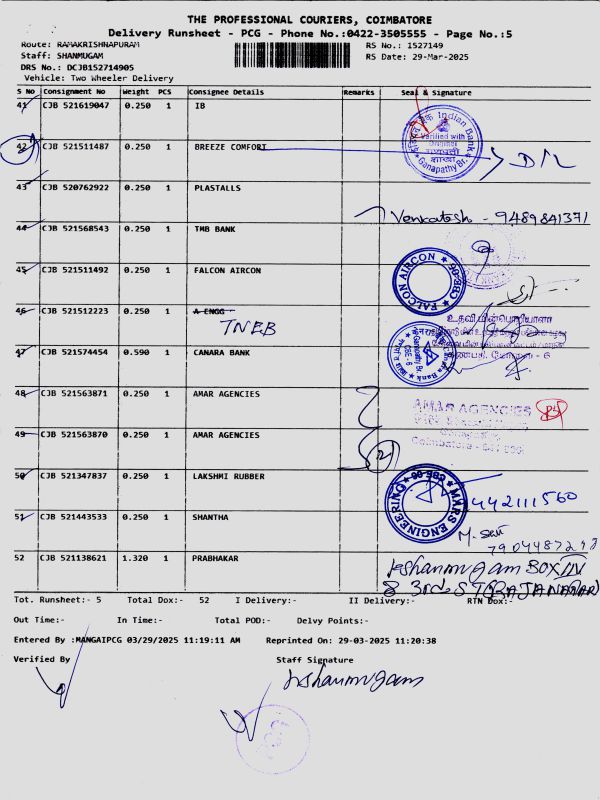 THE PROFESSIONAL COURIERS, COIMBATORE
Delivery Runsheet - PCG - Phone No.:0422-3505555 - Page No.:5
Route: RAMAKRISHNAPURAM
RS No.: 1527149
Staff: SHANMUGAM
RS Date: 29-Mar-2025
DRS No.: DCJB152714905
Vehicle: Two Wheeler Delivery
S No Consignment No Weight PCS Consignee Details Remarks Seal & Signature
41 CJB 521619047 0.250 1 IB
Indian Bank
Verified with Original
Ganapathy Br.
42 CJB 521511487 0.250 1 BREEZE COMFORT D/L
43 CJB 520762922 0.250 1 PLASTALLS
Venkatesh - 9489841371
44 CJB 521568543 0.250 1 TMB BANK
45 CJB 521511492 0.250 1 FALCON AIRCON
FALCON AIRCON CBE-06
46 CJB 521512223 0.250 1 A ENGG
TNEB
47 CJB 521574454 0.590 1 CANARA BANK
48 CJB 521563871 0.250 1 AMAR AGENCIES
AMAR AGENCIES
49 CJB 521563870 0.250 1 AMAR AGENCIES
2
50 CJB 521347837 0.250 1 LAKSHMI RUBBER
MKRS ENGINEERING CBE-06
442111560
51 CJB 521443533 0.250 1 SHANTHA
52 CJB 521138621 1.320 1 PRABHAKAR
Tot. Runsheet:- 5 Total Dox:- 52 I Delivery:- II Delivery:- RTN Dox:-
Out Time:- In Time:- Total POD:- Delvy Points:-
Entered By :MANGAIPCG 03/29/2025 11:19:11 AM Reprinted On: 29-03-2025 11:20:38
Verified By Staff Signature